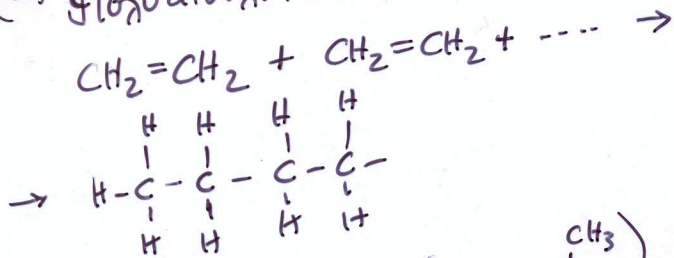 CH₂=CH₂ + CH₂=CH₂ + ---- →
H H H H
→ H-C-C-C-C-
H H H H
CH₃)